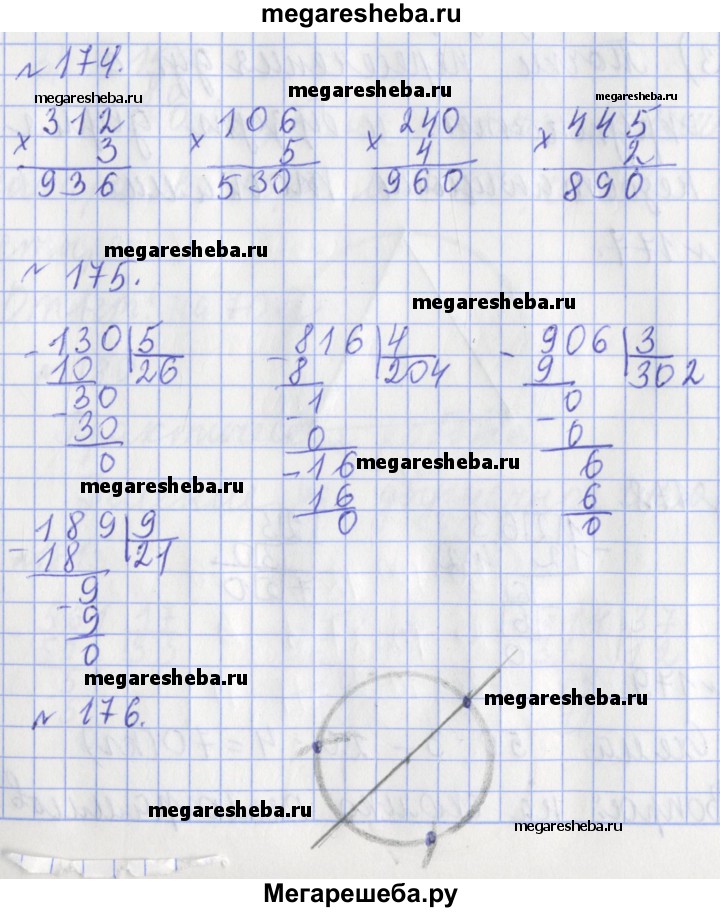 megaresheba.ru
№ 174.
megaresheba.ru megaresheba.ru megaresheba.ru
312 106 240 445
× 3 × 5 × 4 × 2
936 530 960 890
megaresheba.ru
№ 175.
megaresheba.ru
- 130 | 5 - 816 | 4 - 906 | 3
10 26 8 204 9 302
- 30 - 1 - 0
30 0 0
0 - 16 6
megaresheba.ru
16 6
0 0
megaresheba.ru
- 189 | 9
18 21
- 9
9
0
megaresheba.ru
№ 176.
megaresheba.ru
megaresheba.ru
megaresheba.ru
Мегарешеба.ру